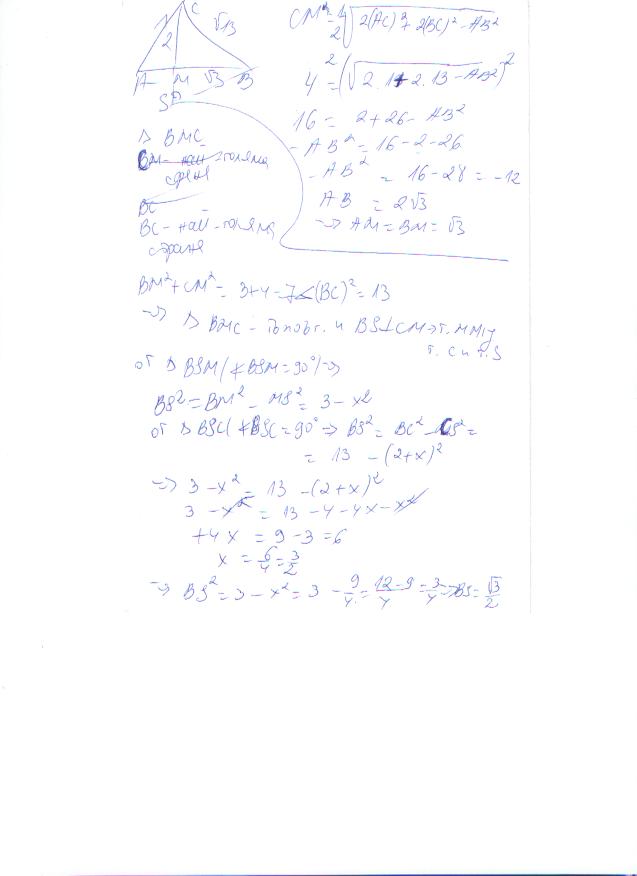 C
1
√13
2
A M √3 B
S
CM = 1/2 √2(AC)² + 2(BC)² - AB²
4 = (√2.1 + 2.13 - AB²)²
16 = 2 + 26 - AB²
- AB² = 16 - 2 - 26
- AB² = 16 - 28 = -12
AB = 2√3
=> AM = BM = √3
Δ BMC
CM - най-голяма
страна
BC -
BC - най-голяма
страна
BM² + CM² = 3+4 = 7 < (BC)² = 13
=> Δ BMC - тъпоъг. и BS⊥CM => т. M м/у
т. C и т. S
от Δ BSM (∢BSM = 90°) =>
BS² = BM² - MS² = 3 - x²
от Δ BSC (∢BSC = 90° => BS² = BC² - CS² =
= 13 - (2+x)²
=> 3 - x² = 13 - (2+x)²
3 - x² = 13 - 4 - 4x - x²
+4x = 9 - 3 = 6
x = 6/4 = 3/2
=> BS² = 3 - x² = 3 - 9/4 = (12-9)/4 = 3/4 => BS = √3/2